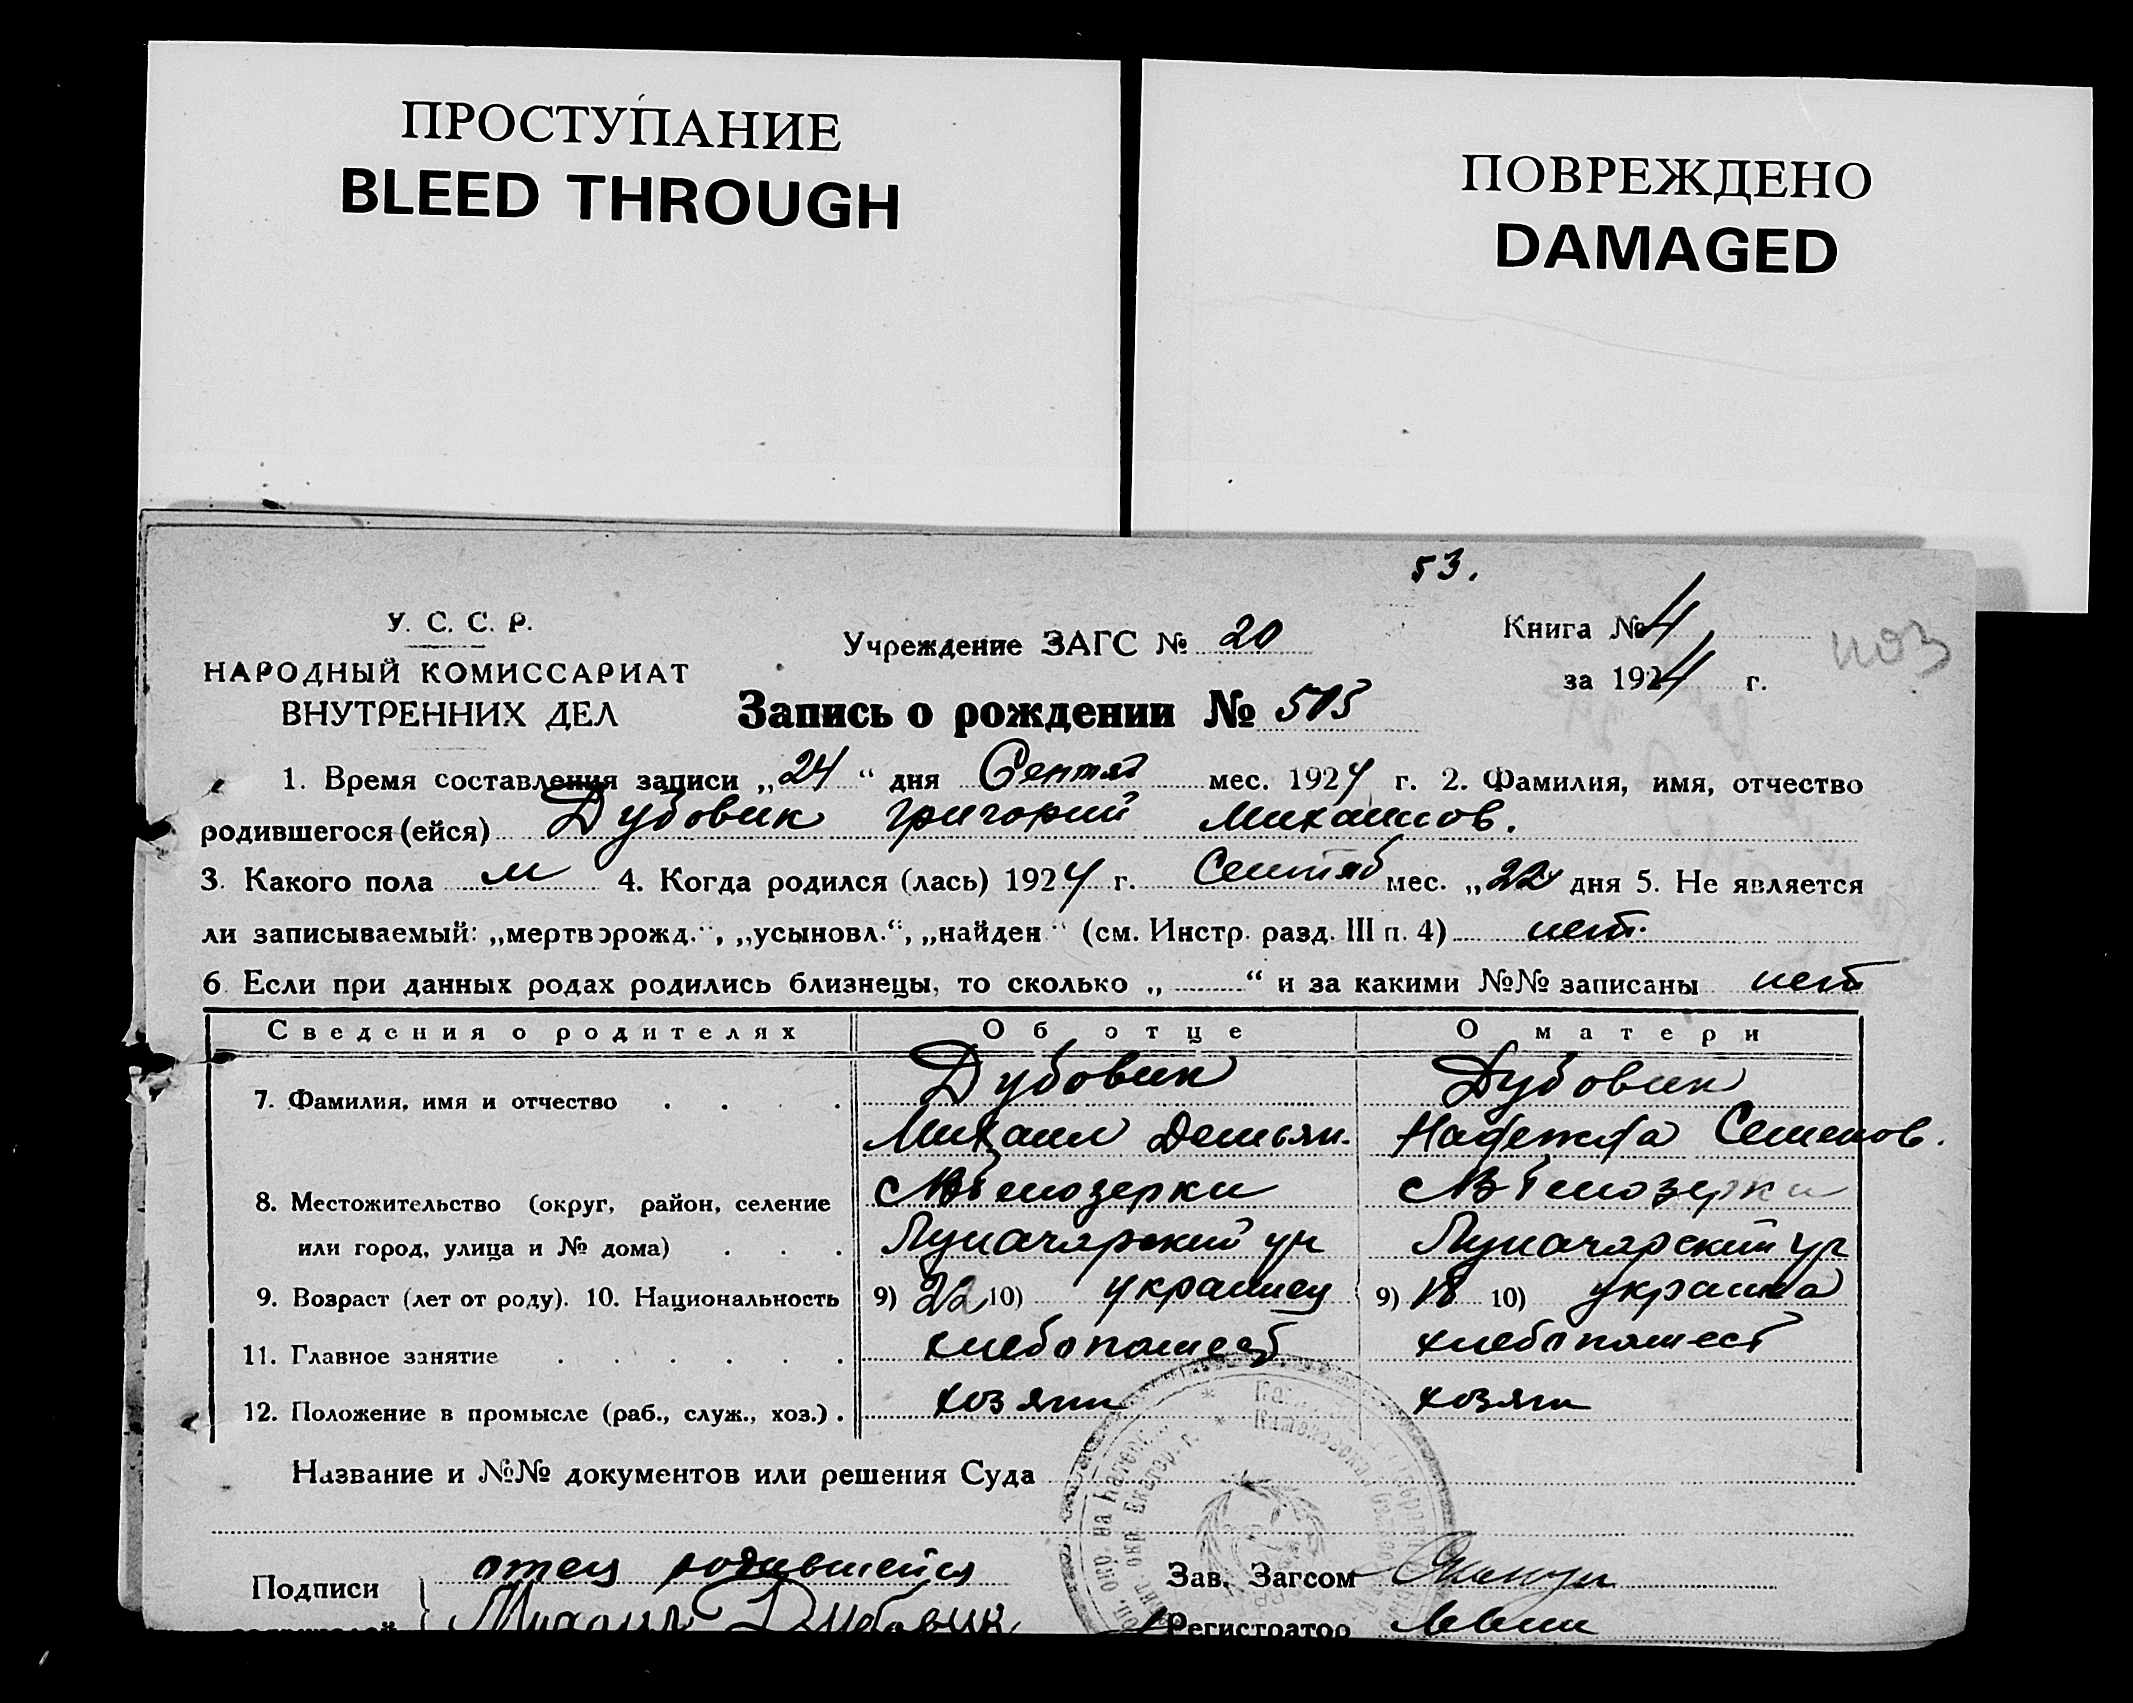 ПРОСТУПАНИЕ
BLEED THROUGH
ПОВРЕЖДЕНО
DAMAGED
53.
У. С. С. Р.
НАРОДНЫЙ КОМИССАРИАТ
ВНУТРЕННИХ ДЕЛ
Учреждение ЗАГС № 20
Книга № 4
за 1924 г.
Запись о рождении № 513
1. Время составления записи „24“ дня Сентяб мес. 1924 г. 2. Фамилия, имя, отчество
родившегося (ейся) Дубовик Григорий Михаилов.
3. Какого пола м 4. Когда родился (лась) 1924 г. Сентяб мес. „22 дня 5. Не является
ли записываемый: „мертворожд.“, „усыновл.“, „найден“ (см. Инстр. разд. III п. 4) нет.
6 Если при данных родах родились близнецы, то сколько „ “ и за какими №№ записаны нет
Сведения о родителях Об отце О матери
7. Фамилия, имя и отчество Дубовик Дубовик
Михаил Демьян. Надежда Семенов.
8. Местожительство (округ, район, селение Белозерки Белозерки
или город, улица и № дома) Луначарский ул Луначарский ул
9. Возраст (лет от роду). 10. Национальность 9) 22 10) украинец 9) 18 10) украинка
11. Главное занятие хлебопашест хлебопашест
12. Положение в промысле (раб., служ., хоз.) хозяин хозяин
Название и №№ документов или решения Суда
Подписи отец родившейся Зав. Загсом
Михаил Дубовик Регистратор